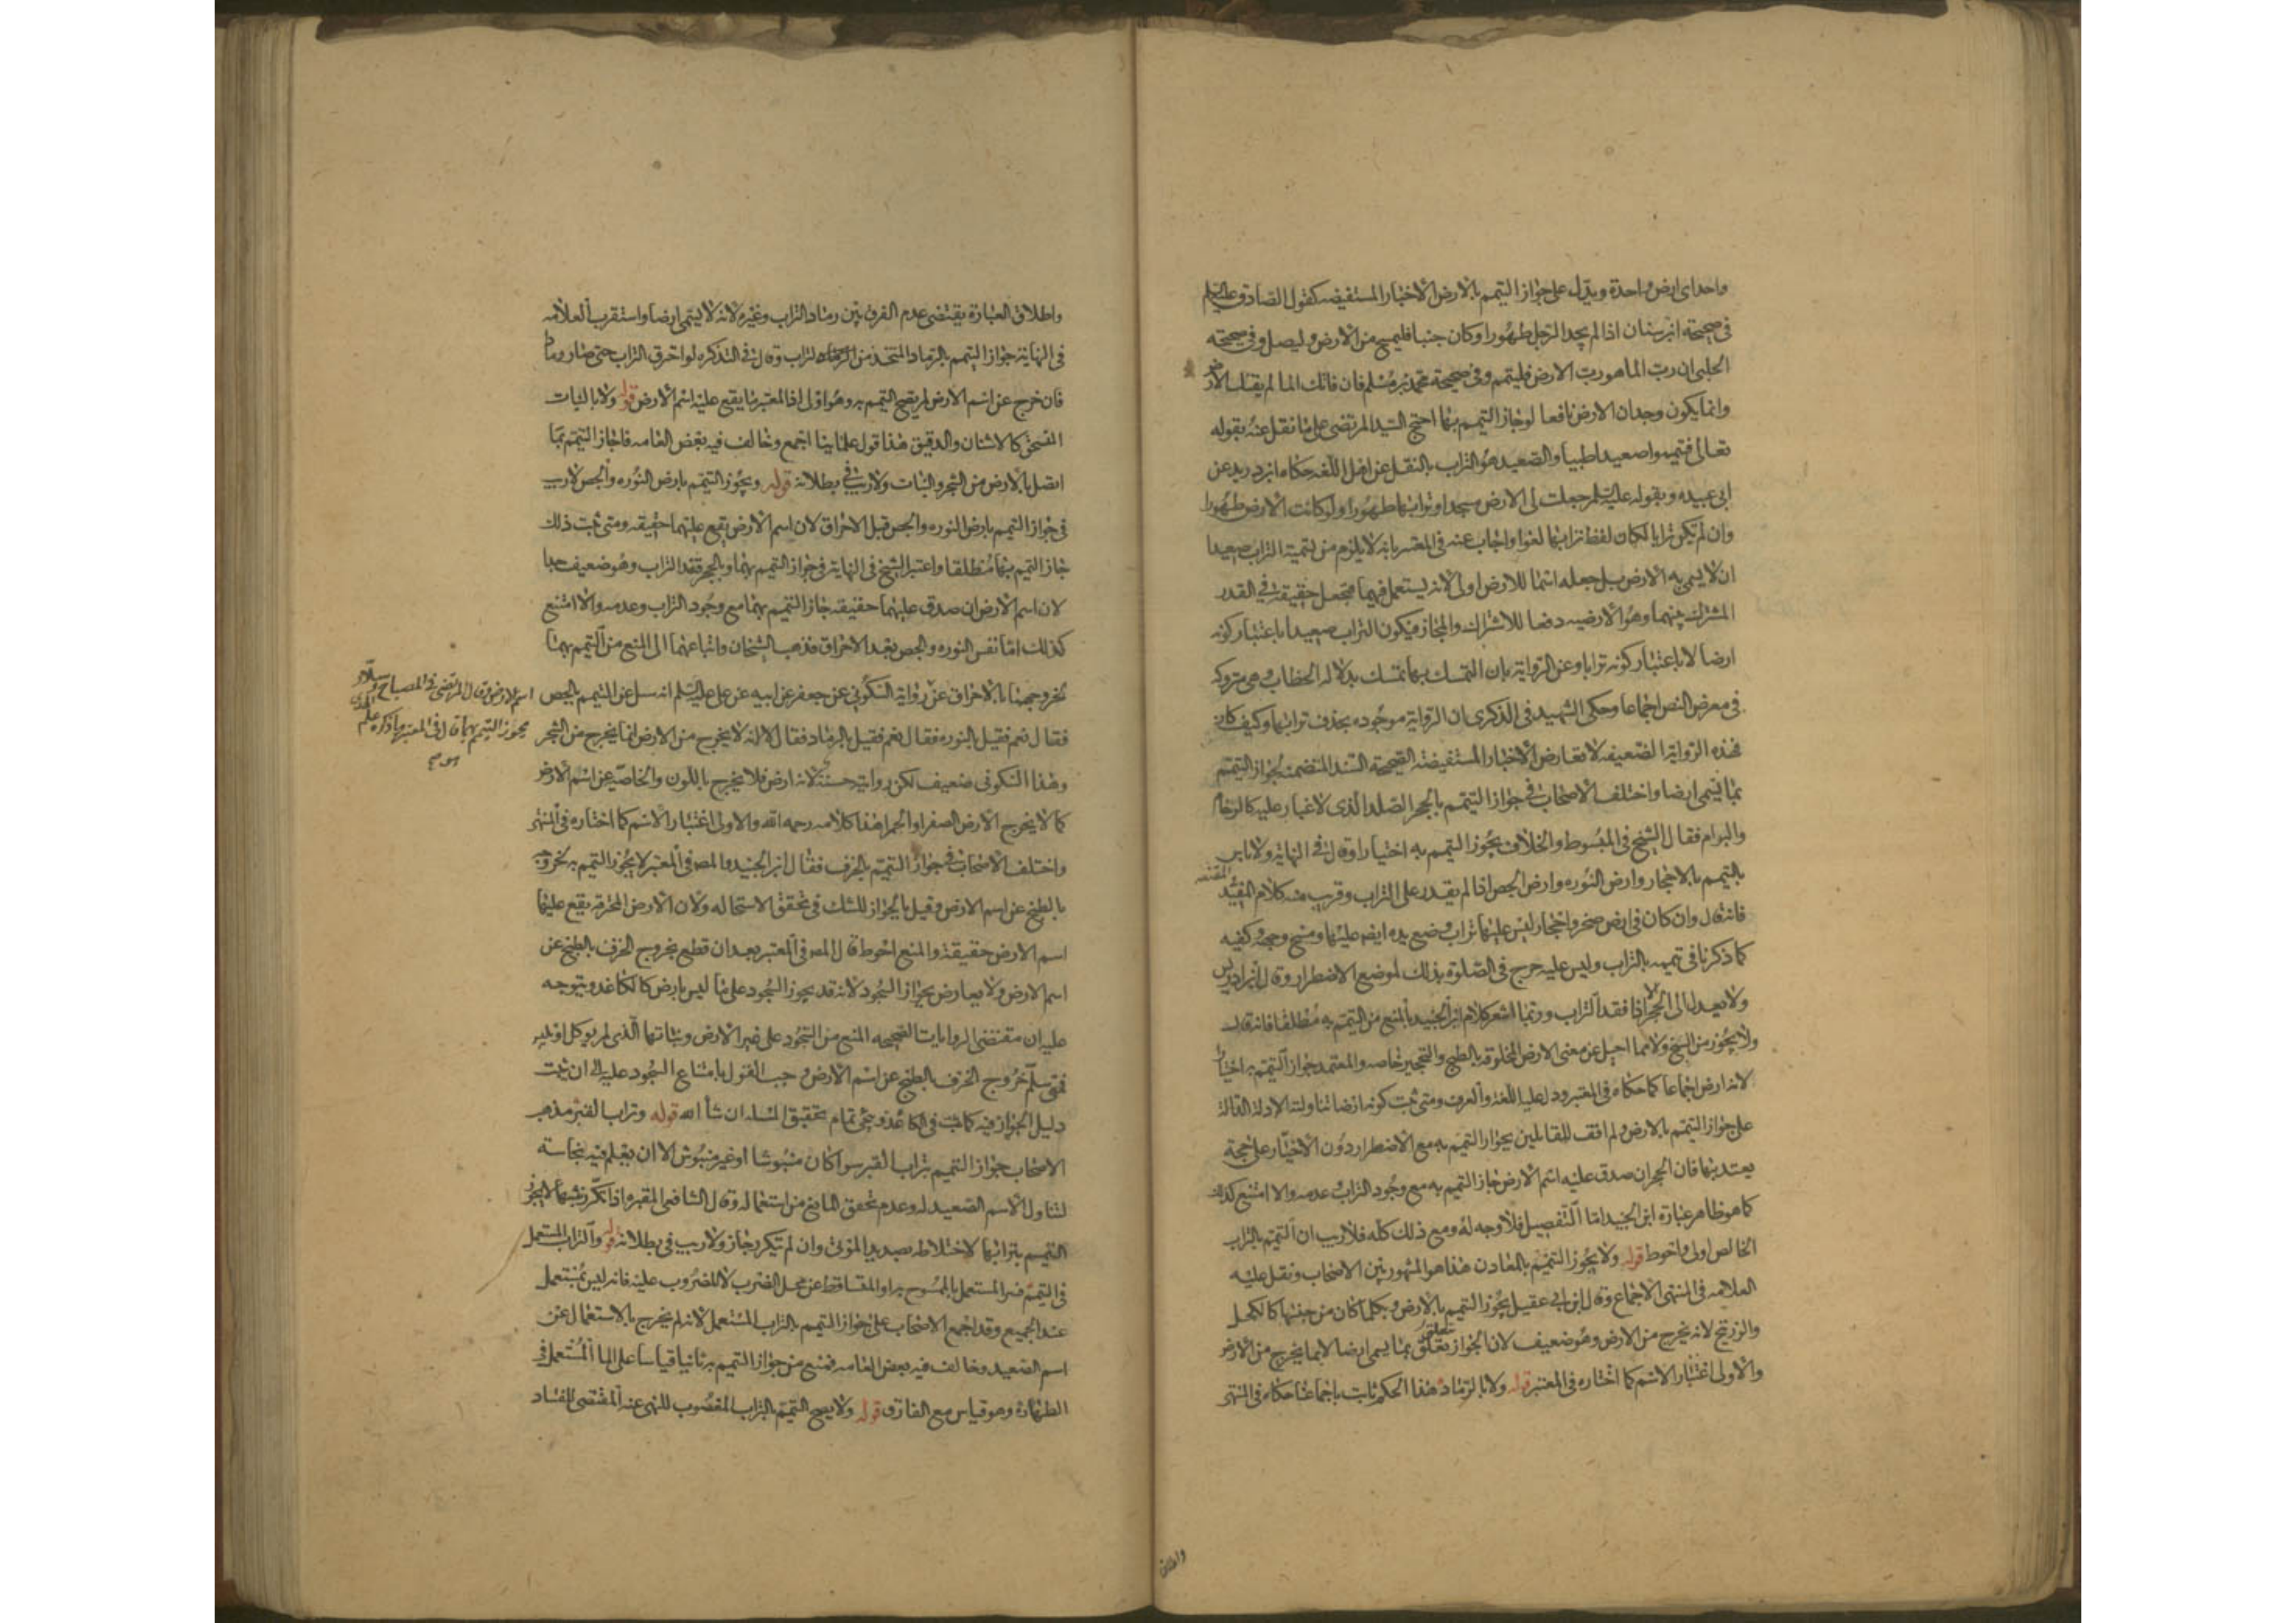 واحدا ای ارض واحدة ويدل على جواز التيمم بالارض الاخبار المستفيضه كقول الصادق عليه السلم
فى صحيحة ابن سنان اذا لم يجد الرجل طهورا وكان جنبا فليمسح من الارض وليصل وفى صحيحة
الحلبى ان رب الما هو رب الارض فليتيمم وفى صحيحة محمد بن مسلم فان فاتك الما لم يفتك الارض
وانما يكون وجدان الارض نافعا لو جاز التيمم بها احتج السيد المرتضى على ما نقل عنه بقوله
تعالى فتيمموا صعيدا طيبا والصعيد هو التراب بالنقل عن اهل اللغه حكاه ابن دريد عن
ابى عبيده وبقوله عليه السلم جعلت لى الارض مسجدا وترابها طهورا ولو كانت الارض طهورا
وان لم تكن ترابا لكان لفظ ترابها لغوا واجاب عنه فى المعتبر بانه لا يلزم من تسمية التراب صعيدا
ان لا يسمى به الارض بل جعله اسما للارض اولى لانه يستعمل فيهما فيجعل حقيقة فى القدر
المشترك بينهما وهو الارضيه دفعا للاشتراك والمجاز فيكون التراب صعيدا باعتبار كونه
ارضا لا باعتبار كونه ترابا وعن الرواية بان التمسك بها تمسك بدلاله الخطاب وهى متروكه
فى معرض النص اجماعا وحكى الشهيد فى الذكرى ان الرواية موجوده بحذف ترابها وكيف كان
فهذه الرواية الضعيفه لا تعارض الاخبار المستفيضه الصحيحة السند المتضمنه لجواز التيمم
بما يسمى ارضا واختلف الاصحاب فى جواز التيمم بالحجر الصلد الذى لا غبار عليه كالرخام
والبرام فقال الشيخ فى المبسوط والخلاف يجوز التيمم به اختيارا وقال فى النهاية ولا باس
بالتيمم بالاحجار وارض النوره وارض الجص اذا لم يقدر على التراب وقريب منه كلام المفيد
المقنعه
فانه قال وان كان فى ارض صخر واحجار ليس عليها تراب وضع يده ايضه عليها ومسح وجهه وكفيه
كما ذكرنا فى تيممه بالتراب وليس عليه حرج فى الصلوة بذلك لموضع الاضطرار وقال ابن ادريس
ولا يعدل الى الحجر الا اذا فقد التراب وربما اشعر كلام ابن الجنيد بالمنع من التيمم به مطلقا فانه قال
ولا يجوز من السبخ ولا مما احيل عن معنى الارض المخلوقه بالطبخ والتحجير خاصه والمعتمد جواز التيمم به اختيارا
لانه ارض اجماعا كما حكاه فى المعتبر ودل عليه اللغة والعرف ومتى ثبت كونه ارضا تناولته الادلة الدالة
على جواز التيمم بالارض ولم اقف للقائلين بجواز التيمم به مع الاضطرار دون الاختيار على حجة
يعتد بها فان الحجر ان صدق عليه اسم الارض جاز التيمم به مع وجود التراب وعدمه والا امتنع كذلك
كما هو ظاهر عبارة ابن الجنيد اما التفصيل فلا وجه له ومع ذلك كله فلا ريب ان التيمم بالتراب
الخالص اولى واحوط قوله ولا يجوز التيمم بالمعادن هذا هو المشهور بين الاصحاب ونقل عليه
العلامه فى المنتهى الاجماع وقال ابن ابى عقيل يجوز التيمم بالارض وبكلما كان من جنسها كالكحل
والزرنيخ لانه يخرج من الارض وهو ضعيف لان الجواز تعلق بما يسمى ارضا لا بما يخرج من الارض
والاولى اعتبار الاسم كما اختاره فى المعتبر قوله ولا بالرماد هذا الحكم ثابت باجماعنا حكاه فى المنتهى
واطلاق
واطلاق العبارة يقتضى عدم الفرق بين رماد التراب وغيره لانه لا يسمى ارضا واستقرب العلامه
فى النهاية جواز التيمم بالرماد المتخذ من التراب وقال فى التذكره لو احترق التراب حتى صار رمادا
فان خرج عن اسم الارض لم يصح التيمم به وهو اولى اذ المعتبر ما يقع عليه اسم الارض قوله ولا بالنبات
المنسحق كالاشنان والدقيق هذا قول علماينا اجمع وخالف فيه بعض العامه فاجاز التيمم بما
اتصل بالارض من الشجر والنبات ولا ريب فى بطلانه قوله ويجوز التيمم بارض النوره والجص لا ريب
فى جواز التيمم بارض النوره والجص قبل الاحراق لان اسم الارض يقع عليهما حقيقه ومتى ثبت ذلك
جاز التيمم بهما مطلقا واعتبر الشيخ فى النهاية فى جواز التيمم بهما وبالحجر فقد التراب وهو ضعيف جدا
لان اسم الارض ان صدق عليهما حقيقه جاز التيمم بهما مع وجود التراب وعدمه والا امتنع
كذلك اما نفس النوره والجص بعد الاحراق فذهب الشيخان واتباعهما الى المنع من التيمم بهما
لخروجهما بالاحراق عن رواية السكونى عن جعفر عن ابيه عن على عليه السلم انه سئل عن التيمم بالجص
اسم الارض وقال المرتضى فى المصباح وسلار
يجوز التيمم بهما قال فى المعتبر وما ذكره علم الهدى
هو صح
فقال نعم فقيل بالنوره فقال نعم فقيل بالرماد فقال لا انه لا يخرج من الارض انما يخرج من الشجر
وهذا السكونى ضعيف لكن روايته حسنة لانه ارض فلا يخرج باللون والخاصية عن اسم الارض
كما لا يخرج الارض الصفرا والحمرا هذا كلامه رحمه الله والاولى اعتبار الاسم كما اختاره فى المنتهى
واختلف الاصحاب فى جواز التيمم بالخزف فقال ابن الجنيد والمص فى المعتبر لا يجوز التيمم به لخروجه
بالطبخ عن اسم الارض وقيل بالجواز للشك فى تحقق الاستحاله ولان الارض المحترقه يقع عليها
اسم الارض حقيقة والمنع احوط قال المص فى المعتبر بعد ان قطع بخروج الخزف بالطبخ عن
اسم الارض ولا يعارض بجواز السجود لانه قد يجوز السجود على ما ليس بارض كالكاغد ويتوجه
عليه ان مقتضى الروايات الصحيحه المنع من السجود على غير الارض ونباتها الذى لم يوكل او يلبس
فمتى سلم خروج الخزف بالطبخ عن اسم الارض وجب القول بامتناع السجود عليه الى ان يثبت
دليل الجواز فيه كما ثبت فى الكاغذ ويجئ تمام تحقيق المسله ان شا الله قوله وتراب القبر مذهب
الاصحاب جواز التيمم بتراب القبر سوا كان منبوشا او غير منبوش الا ان يعلم فيه نجاسة
لتناول الاسم الصعيد له وعدم تحقق المانع من استعماله وقال الشافعى المقبره اذا تكرر نبشها لا يجوز
التيمم بترابها لاختلاطه بصديد الموتى وان لم تتكرر جاز ولا ريب فى بطلانه قوله والتراب المستعمل
فى التيمم فسر المستعمل بالممسوح به او المتساقط عن محل الضرب لا المضروب عليه فانه ليس بمستعمل
عند الجميع وقد اجمع الاصحاب على جواز التيمم بالتراب المستعمل لانه لم يخرج بالاستعمال عن
اسم الصعيد وخالف فيه بعض العامه فمنع من جواز التيمم به ثانيا قياسا على الما المستعمل فى
الطهارة وهو قياس مع الفارق قوله ولا يصح التيمم بالتراب المغصوب للنهى عنه المقتضى للفساد